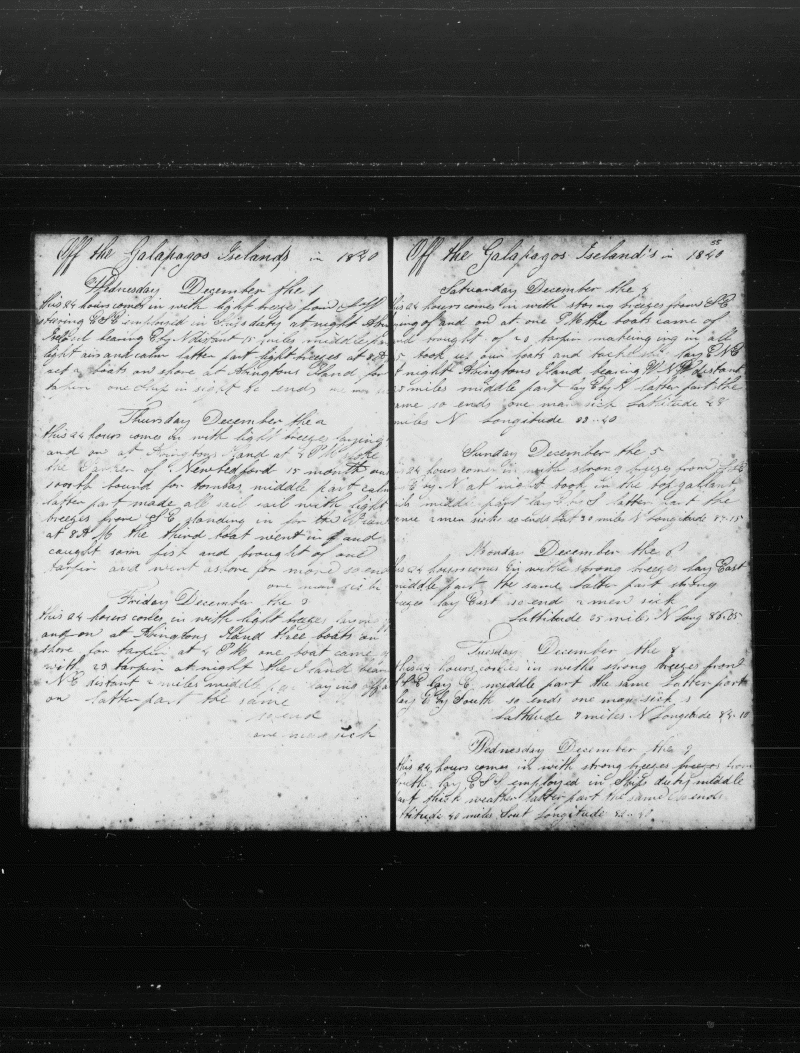 Off the Galapagos Iselands in 1840
Wednesday December the 1
this 24 hours comes in with light breezes from
stearing ESE employed in Ships duty at night
Island bearing E by N distant 15 miles middle part
light airs and calm latter part light breezes at 8 A
set boats on shore at Abingtons Island for
tarpin one ship in sight so ends one man
Thursday December the 2
this 24 hours comes in with light breezes laying
and on at Abingtons Island at 4 PM spoke
the of Newbedford 15 months out
bound for tombas middle part calm
latter part made all sail with light
breezes from SE standing in for the
at 8 A M the third boat went in and
caught som fish and brought of one
tarpin and went ashore for more so end
one man sick
Friday December the 3
this 24 hours comes in with light breezes laying
and on at Abingtons Island three boats on
shore for tarpin at 4 PM one boat came
with 23 tarpin at night the Island bearin
NE distant 2 miles middle par laying off an
on latter part the same
so end
one man sick
55
Off the Galapagos Iseland's in 1840
Saturanday December the 4
his 24 hours comes in with strong breezes from SE
of and on at one P M the boats came of
and brought of 20 tarpin making in all
took up our boats and lay ENE
t night Abingtons Island bearing distant
miles middle part lay E by N latter part the
ame so ends one man sick Lattitude 48
miles N Longitude 89.. 40
Sunday December the 5
24 hours comes in with strong breezes from
E by N at took in the topgallant
ils middle part lay latter part the
ame 2 men sick so ends Lat 30 miles N Longitude 87-15
Monday December the 6
his 24 hours comes in with strong breezes lay East
middle part the same latter part strong
breezes lay East so end 2 men sick
Lattitude 35 miles N Long 86.05
Tuesday December the
this 24 hours comes in with strong breezes from
lay E middle part the same latter part
lay E by South so ends one man sick
Lattitude 9 miles N Longitude 84.10
Wednesday December the
this 24 hours comes in with strong breezes breezes from
South lay employed in Ships duty middle
art thick weather latter part the same so ends
ttitude 40 miles Sout Longitude